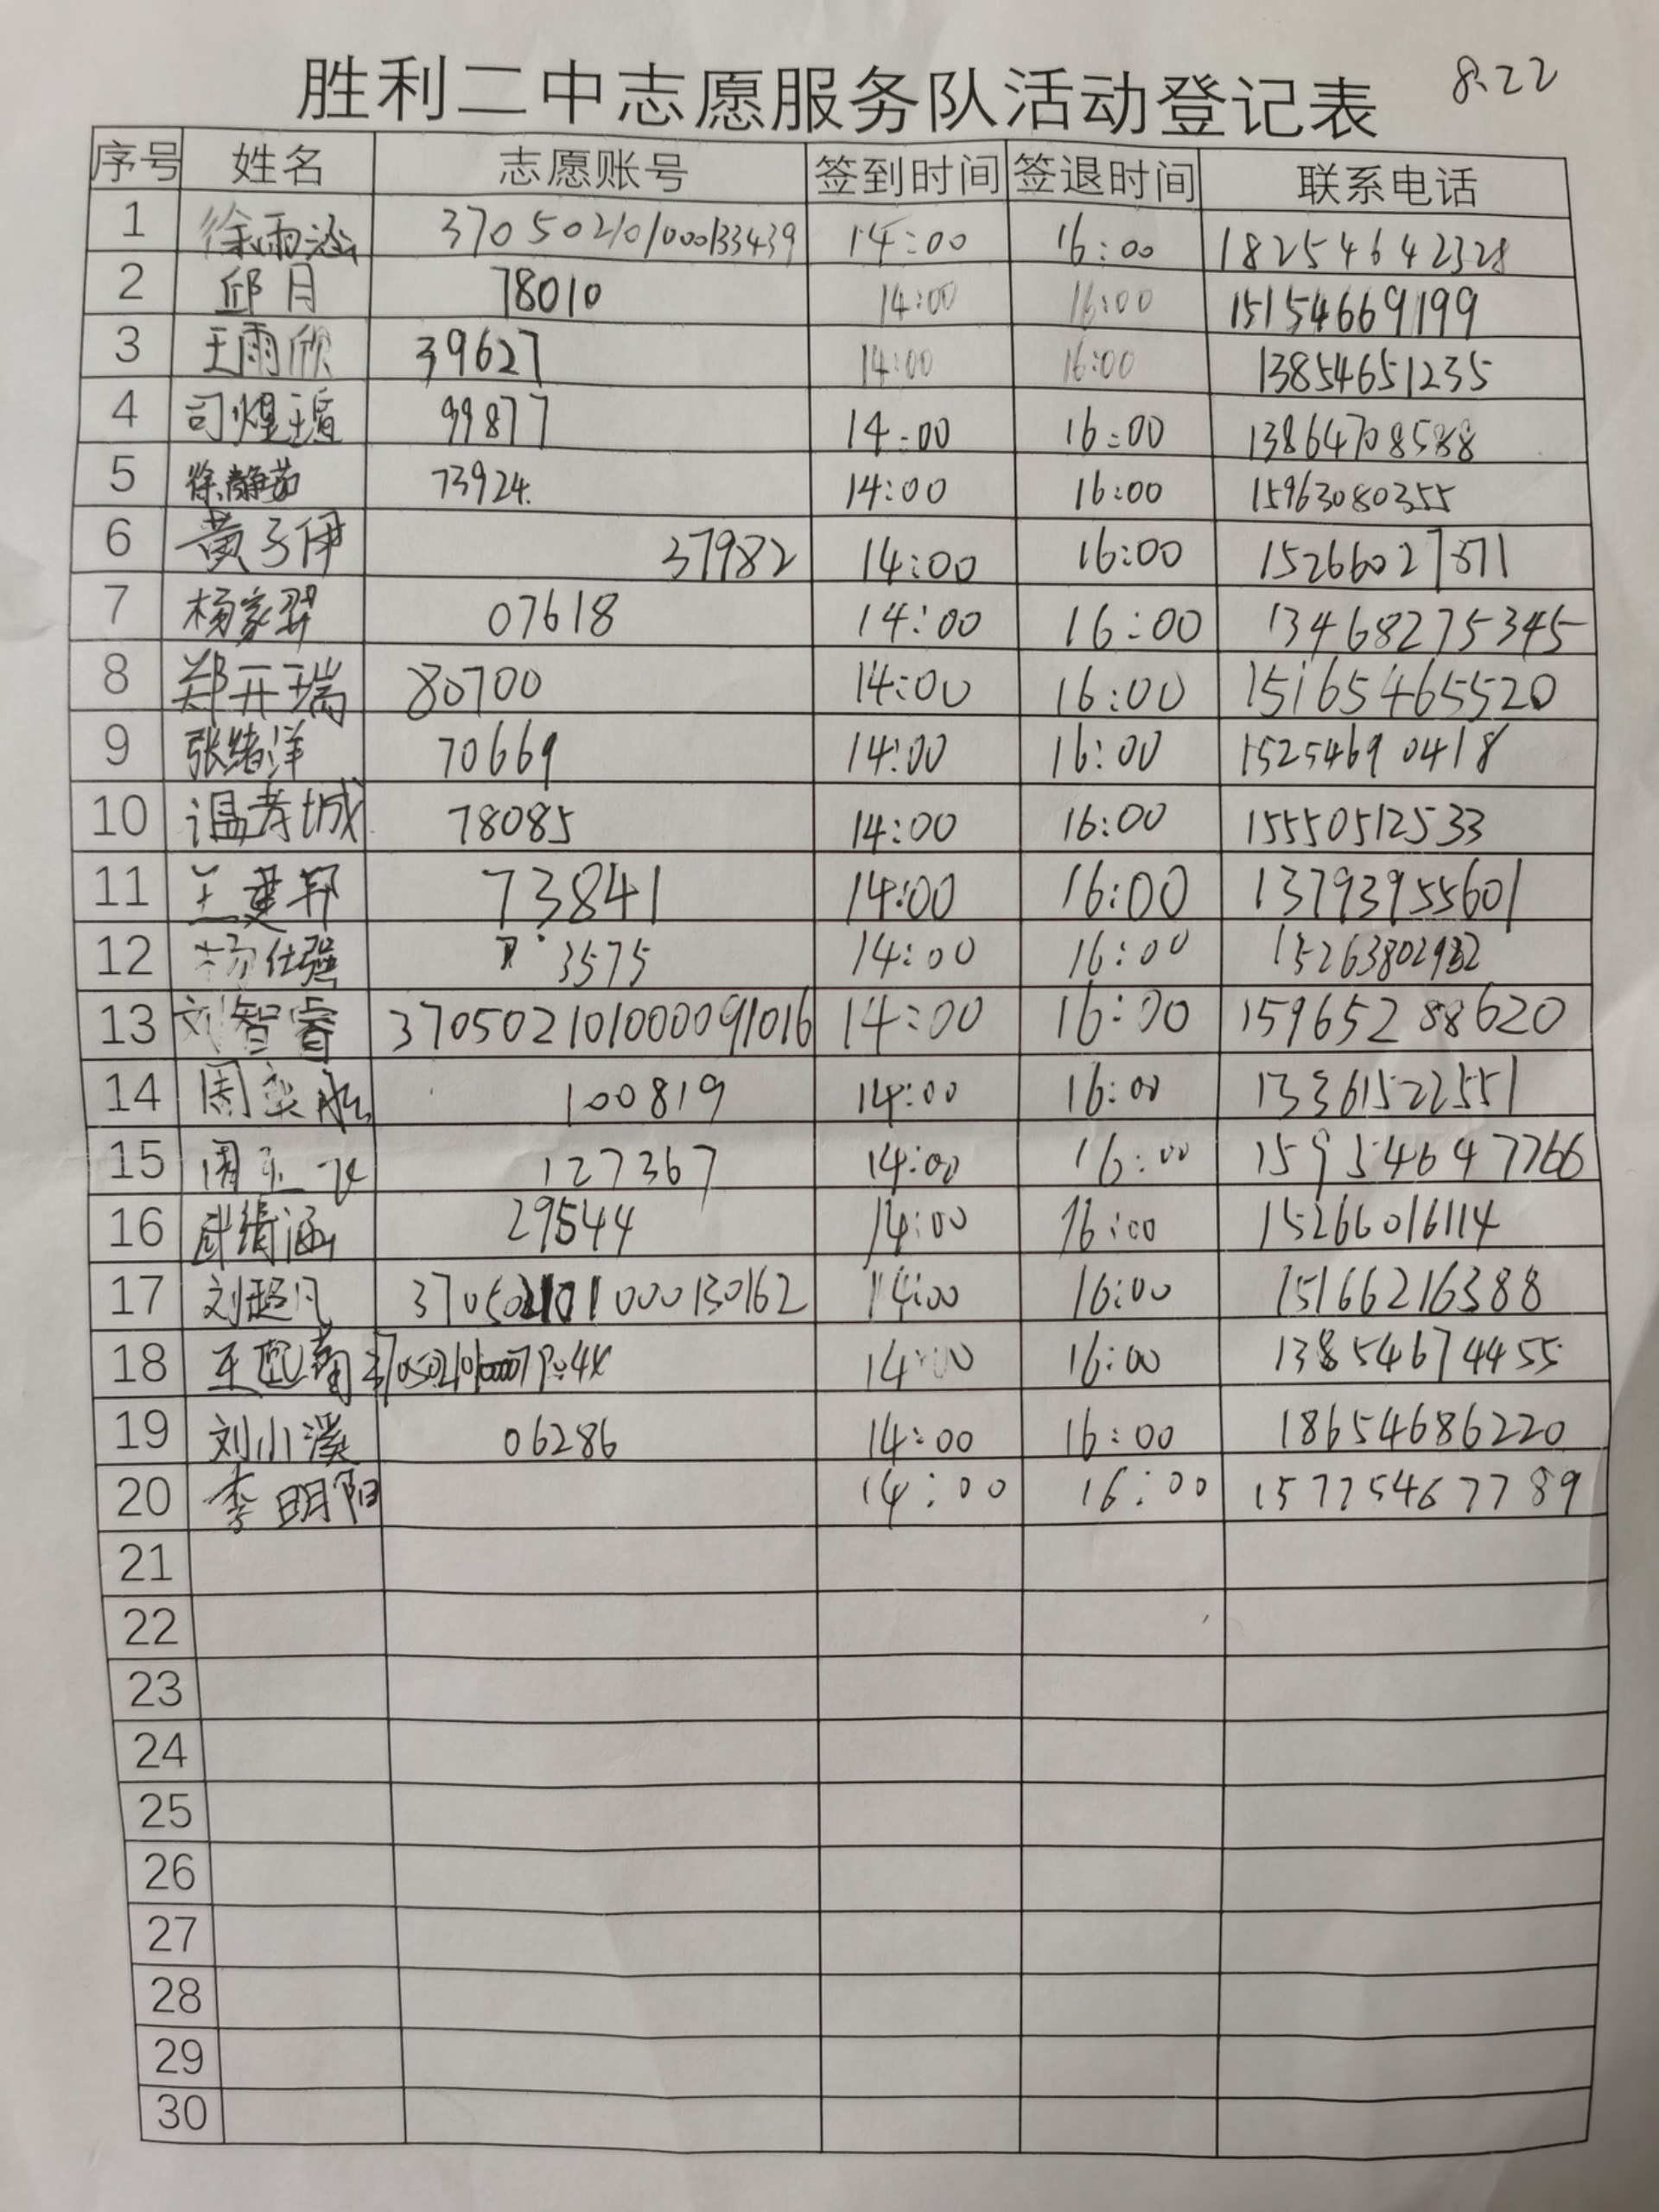 胜利二中志愿服务队活动登记表 8.22
序号 姓名 志愿账号 签到时间 签退时间 联系电话
1 徐雨涵 370502101000133439 14:00 16:00 18254642328
2 邱月 78010 14:00 16:00 15154669199
3 王雨欣 39627 14:00 16:00 13854651235
4 司煜瑄 99877 14:00 16:00 13864708588
5 徐静茹 73924. 14:00 16:00 15963080355
6 黄子伊 37982 14:00 16:00 15266027871
7 杨家羿 07618 14:00 16:00 13468275345
8 郑开瑞 80700 14:00 16:00 15165465520
9 张绪洋 70669 14:00 16:00 15254690418
10 温孝城 78085 14:00 16:00 15550512533
11 王建邦 73841 14:00 16:00 13793955601
12 杨仕强 3575 14:00 16:00
13 刘智睿 370502101000091016 14:00 16:00 15965288620
14 周 100819 14:00 16:00 13361522551
15 周 127367 14:00 16:00 15954647766
16 绮涵 29544 14:00 16:00 15266016114
17 刘超凡 370502101000130162 14:00 16:00 15166216388
18 王 14:00 16:00 13854674455
19 刘小溪 06286 14:00 16:00 18654686220
20 李明阳 14:00 16:00 15725467789
21
22
23
24
25
26
27
28
29
30